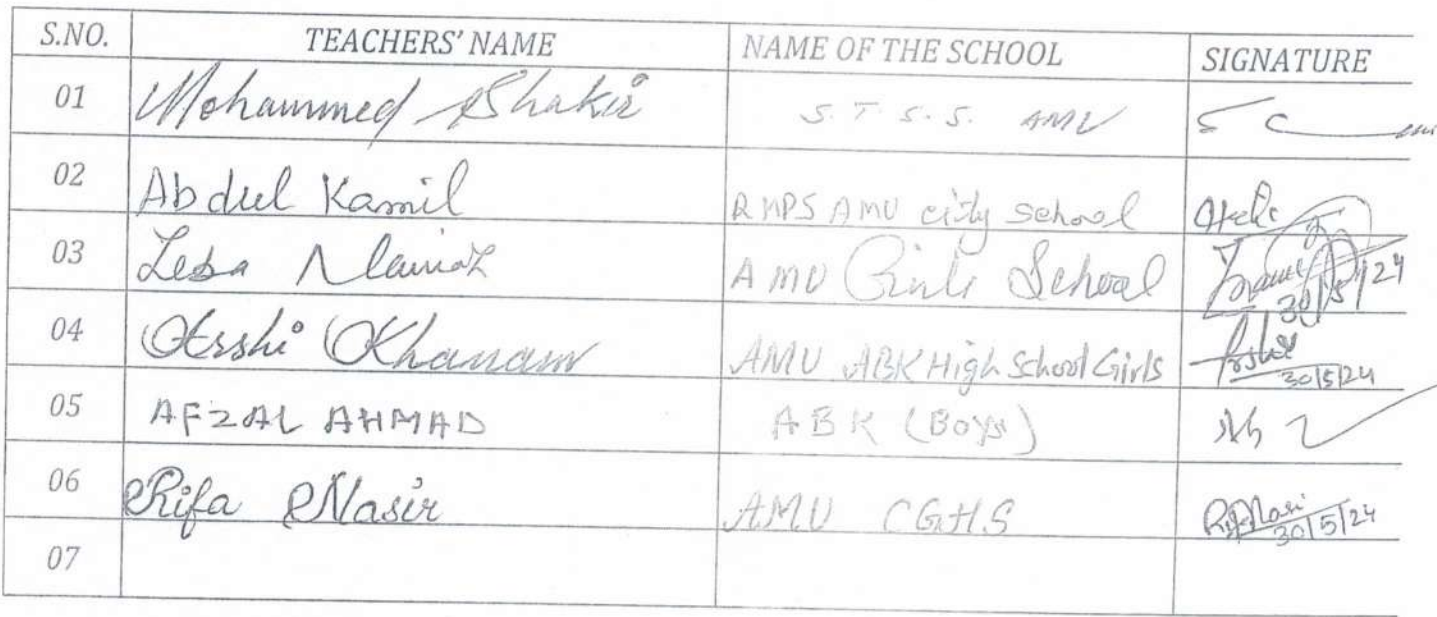 S.NO. TEACHERS' NAME NAME OF THE SCHOOL SIGNATURE
01 Mohammed Shakir S.T.S.S. AMU
02 Abdul Kamil RMPS AMU city School
03 Zeba Nawaz AMU Girls School 30/5/24
04 Arshi Khanam AMU ABK High School Girls Arshi 30/5/24
05 AFZAL AHMAD ABK (Boys)
06 Rifa Nasir AMU CGHS 30/5/24
07